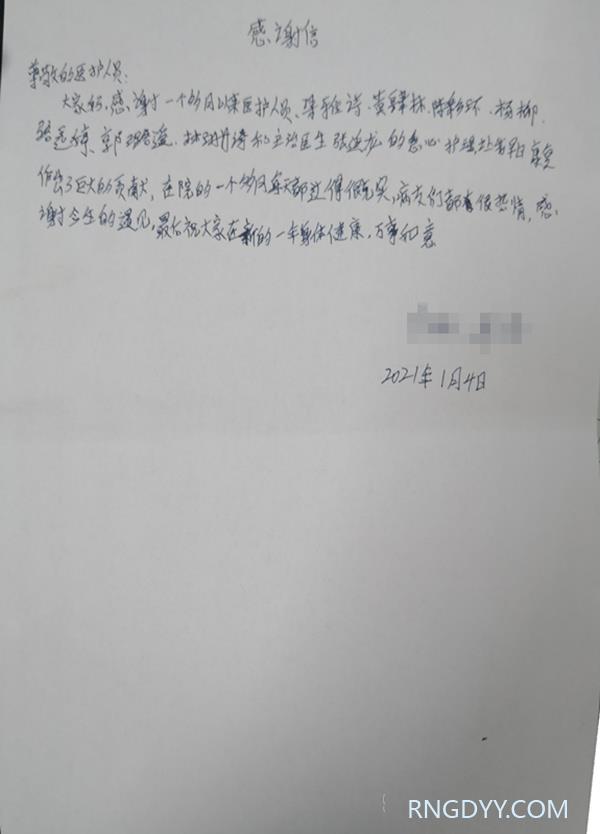 感谢信
尊敬的医护人员：
大家好，感谢一个多月以来医护人员、梁雅诗、黄肆林、陈彩环、杨柳、
骆连琼、郭璐滢、林珊丹琦和主治医生张焕龙的悉心护理让我早日康复
作出了巨大的贡献，在院的一个多月每天都过得很充实，病友们都有很热情，感
谢今生的遇见，最后祝大家在新的一年身体健康，万事如意
2021年1月4日
RNGDYY.COM